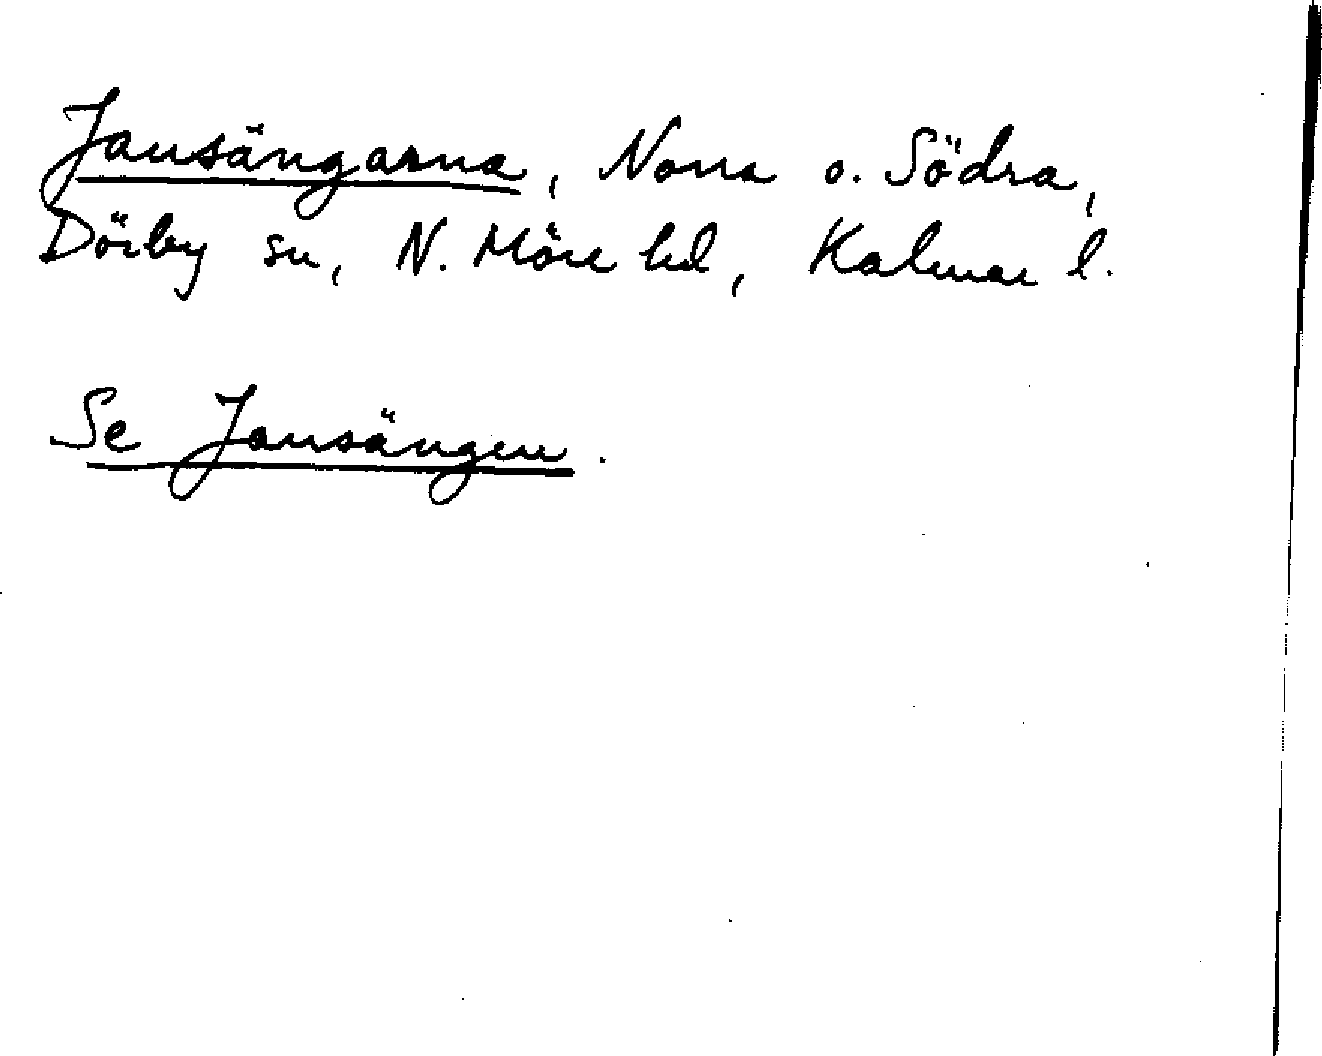 Jansängarna, Norra o. Södra,
Dörby sn, N. Möre hd, Kalmar l.
Se Jansängen.